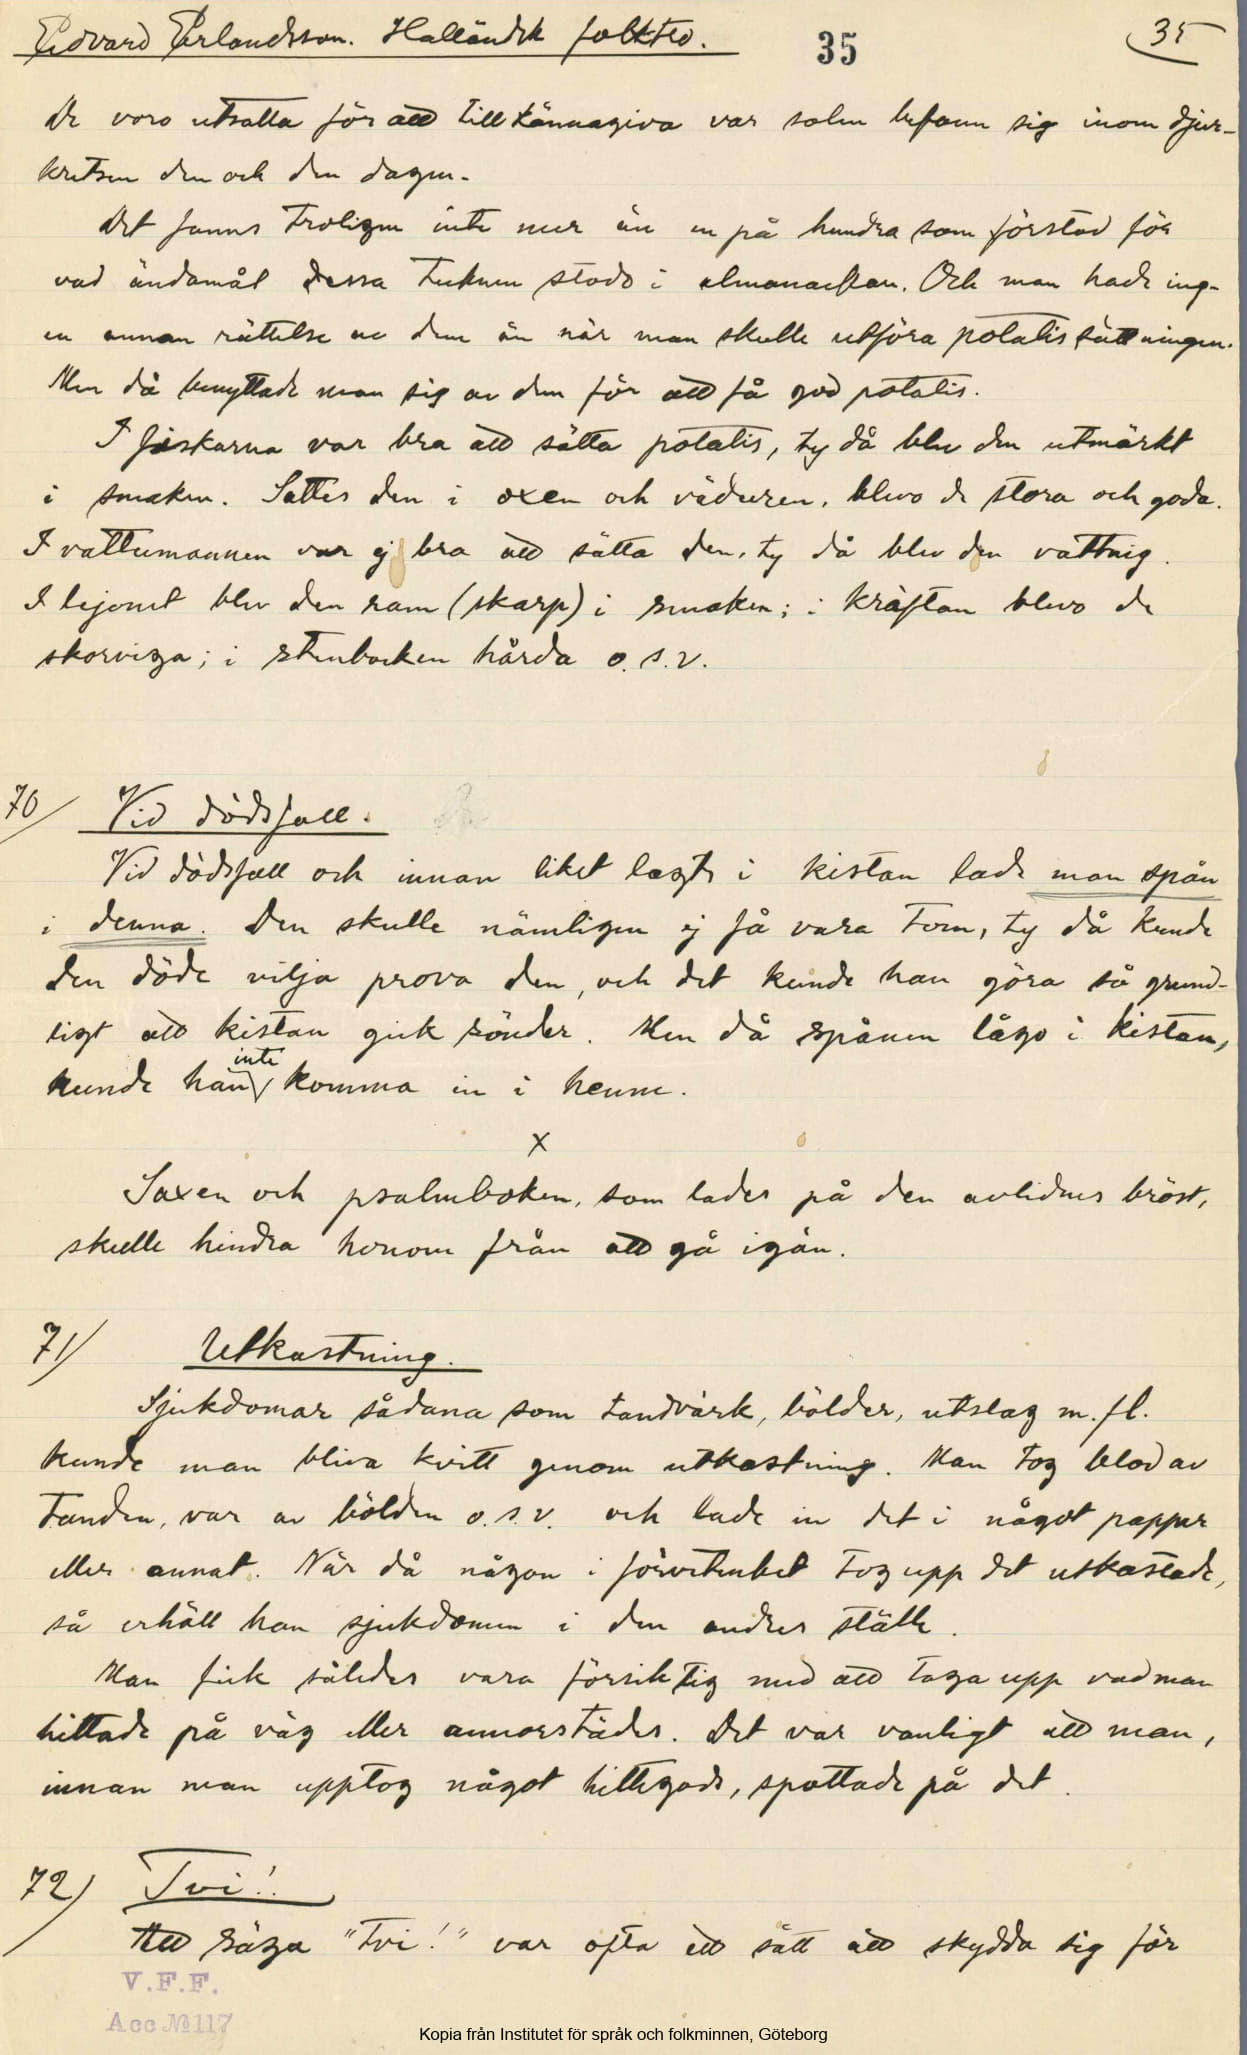 Edvard Erlandsson. Halländsk folktro. 35 35
De voro utsatta för att tillkännagiva var solen befann sig inom djur-
kretsen den och den dagen.
Det fanns troligen inte mer än en på hundra som förstod för
vad ändamål dessa tecknen stodo i almanackan. Och man hade ing-
en annan rättelse av dem än när man skulle utföra potatissättningen.
Men då benyttade man sig av dem för att få god potatis.
I fiskarna var bra att sätta potatis, ty då blev den utmärkt
i smaken. Sattes den i oxen och väduren, blevo de stora och goda.
I vattumannen var ej bra att sätta den, ty då blev den vattnig.
I lejonet blev den ram (skarp) i smaken; i kräftan blevo de
skorviga; i stenbocken hårda o.s.v.
70/ Vid dödsfall.
Vid dödsfall och innan liket lagts i kistan lade man spån
i denna. Den skulle nämligen ej få vara tom, ty då kunde
den döde vilja prova den, och det kunde han göra så grund-
ligt att kistan gick sönder. Men då spånen lågo i kistan,
kunde han inte komma in i henne.
X
Saxen och psalmboken, som lades på den avlidnes bröst,
skulle hindra honom från att gå igän.
71/ Utkastning.
Sjukdomar sådana som tandvärk, bölder, utslag m.fl.
kunde man bliva kvitt genom utkastning. Man tog blod av
tanden, var av bölden o.s.v. och lade in det i något papper
eller annat. När då någon i förvetenhet tog upp det utkastade,
så erhöll han sjukdomen i den andres ställe.
Man fick således vara försiktig med att taga upp vad man
hittade på väg eller annorstädes. Det var vanligt att man,
innan man upptog något hittegods, spottade på det.
72/ Tvi!
Att säga "Tvi!" var ofta ett sätt att skydda sig för
V.F.F.
Acc №117
Kopia från Institutet för språk och folkminnen, Göteborg